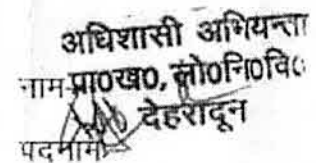 अधिशासी अभियन्ता
नाम प्रा0ख0, लो0नि0वि0
देहरादून
पदनाम